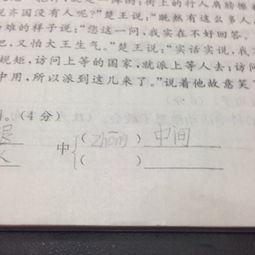 街上的行人肩膀擦
说齐国没有人呢?"楚王说:"既然有这么多人
为难的样子说:"您这一问,我实在不好回答。
,又怕大王生气。"楚王说:"实话实说,我
规矩,访问上等的国家,就派上等人去;访问
中用,所以派到这儿来了。"说着他故意笑
。(4分)
中{(zhōng) 中间
( )